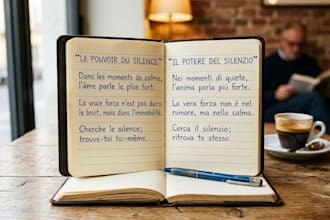 "LE POUVOIR DU SILENCE"
Dans les moments de calme,
l'âme parle le plus fort.
La vraie force n'est pas dans
le bruit, mais dans l'immobilité.
Cherche le silence;
trouve-toi toi-même.
"IL POTERE DEL SILENZIO"
Nei momenti di quiete,
l'anima parla più forte.
La vera forza non è nel
rumore, ma nella calma.
Cerca il silenzio;
ritrova te stesso.